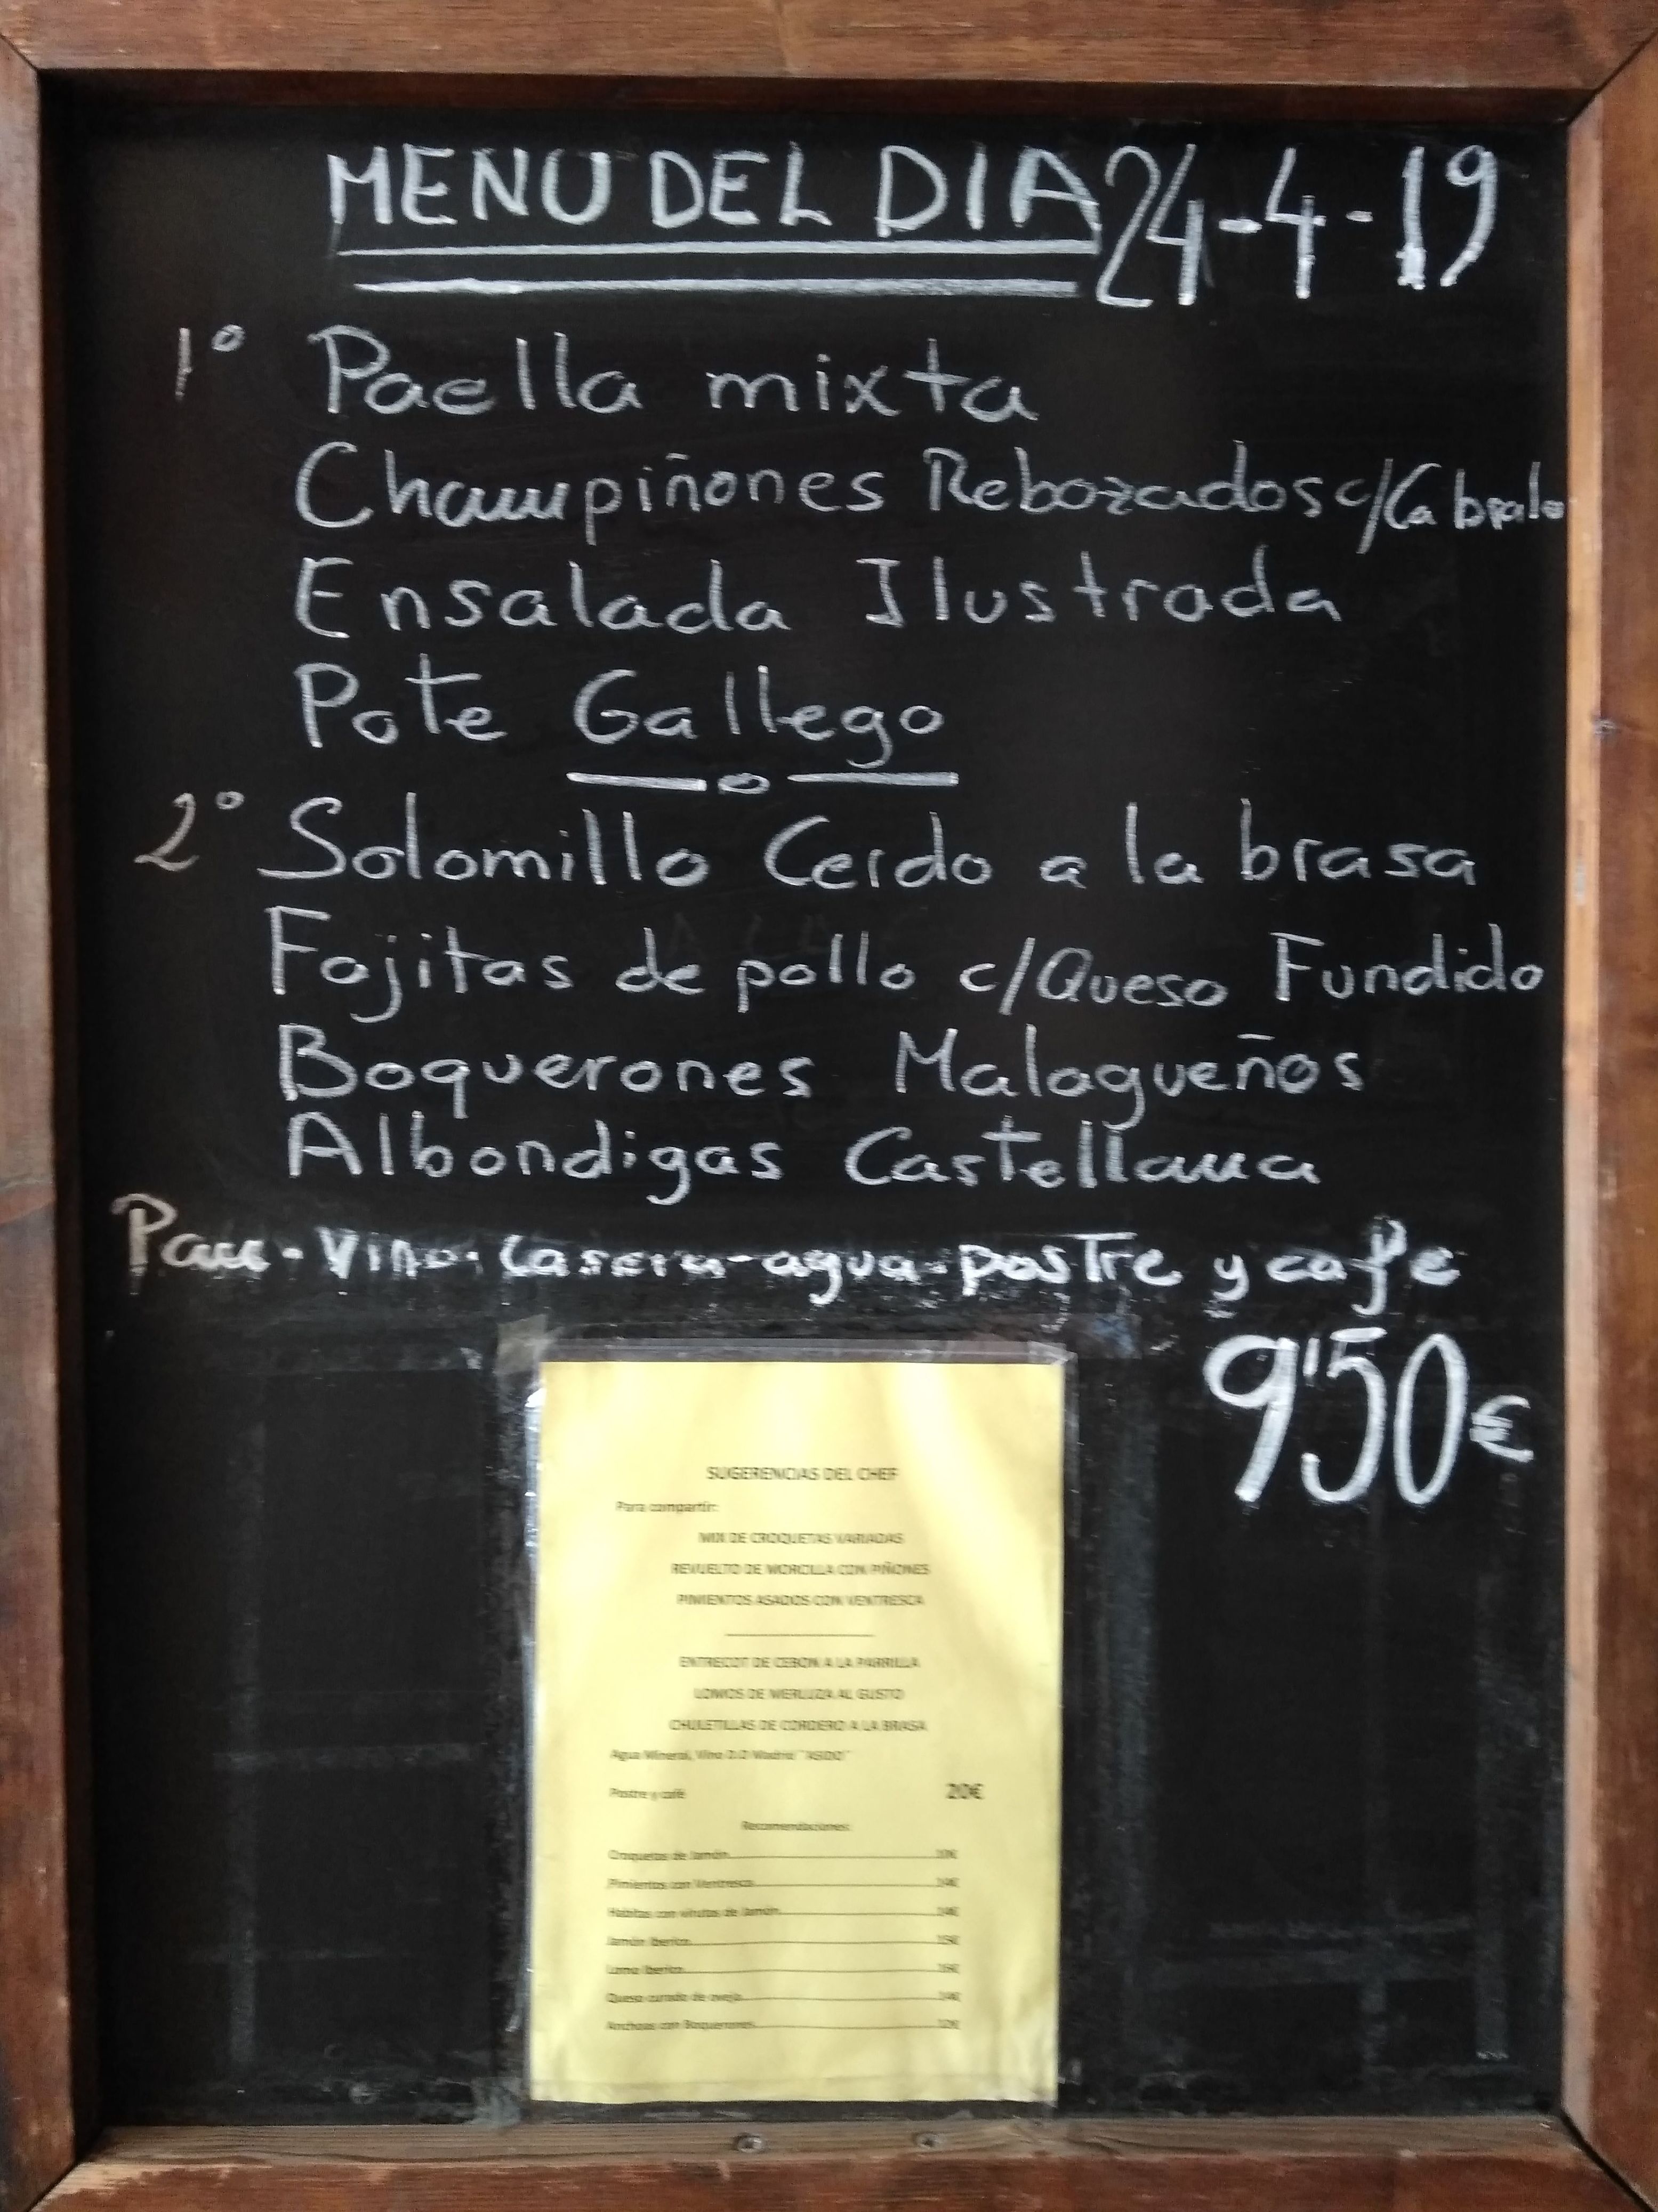 MENU DEL DIA 24-4-19
1º Paella mixta
Champiñones Rebozados c/Cabrales
Ensalada Ilustrada
Pote Gallego
2º Solomillo Cerdo a la brasa
Fajitas de pollo c/Queso Fundido
Boquerones Malagueños
Albondigas Castellana
Pan-Vino-Casera-agua-postre y cafe
9'50€
SUGERENCIAS DEL CHEF
Para compartir:
MIX DE CROQUETAS VARIADAS
REVUELTO DE MORCILLA CON PIÑONES
PIMIENTOS ASADOS CON VENTRESCA
ENTRECOT DE CEBON A LA PARRILLA
LOMOS DE MERLUZA AL GUSTO
CHULETILLAS DE CORDERO A LA BRASA
Agua Mineral, Vino D.O Madrid
Postre y café 20€
Recomendaciones:
Croquetas de Jamón
Pimientos con Ventresca
Habitas con virutas de Jamón
Jamón Iberico
Lomo Iberico
Queso curado de oveja
Anchoas con Boquerones